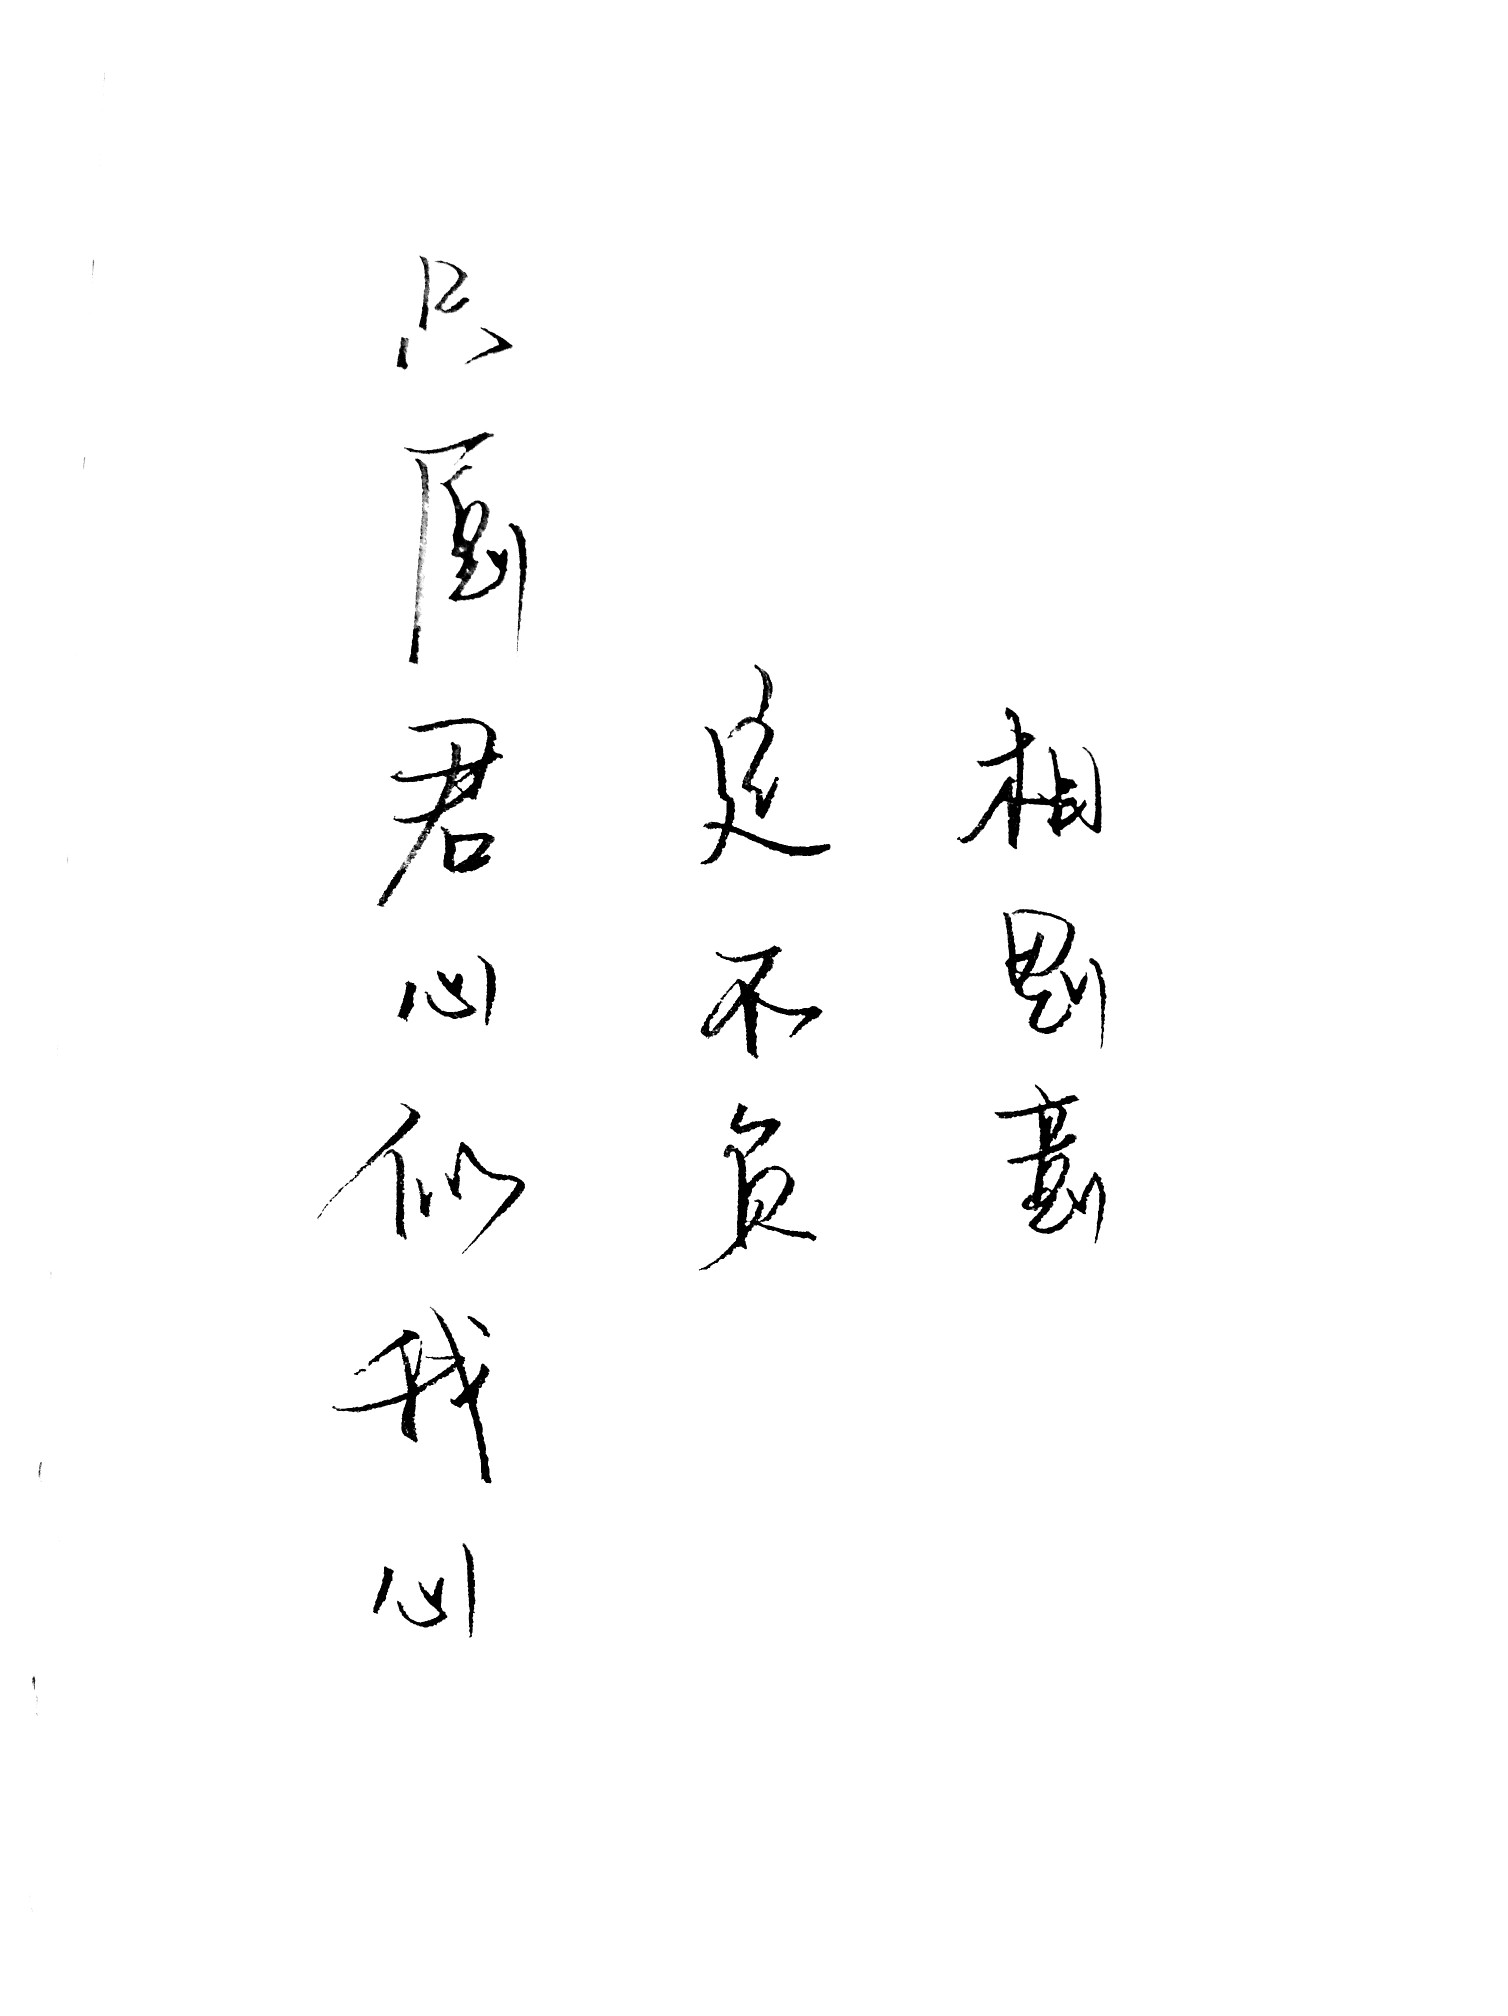 只愿君心似我心
定不负
相思意